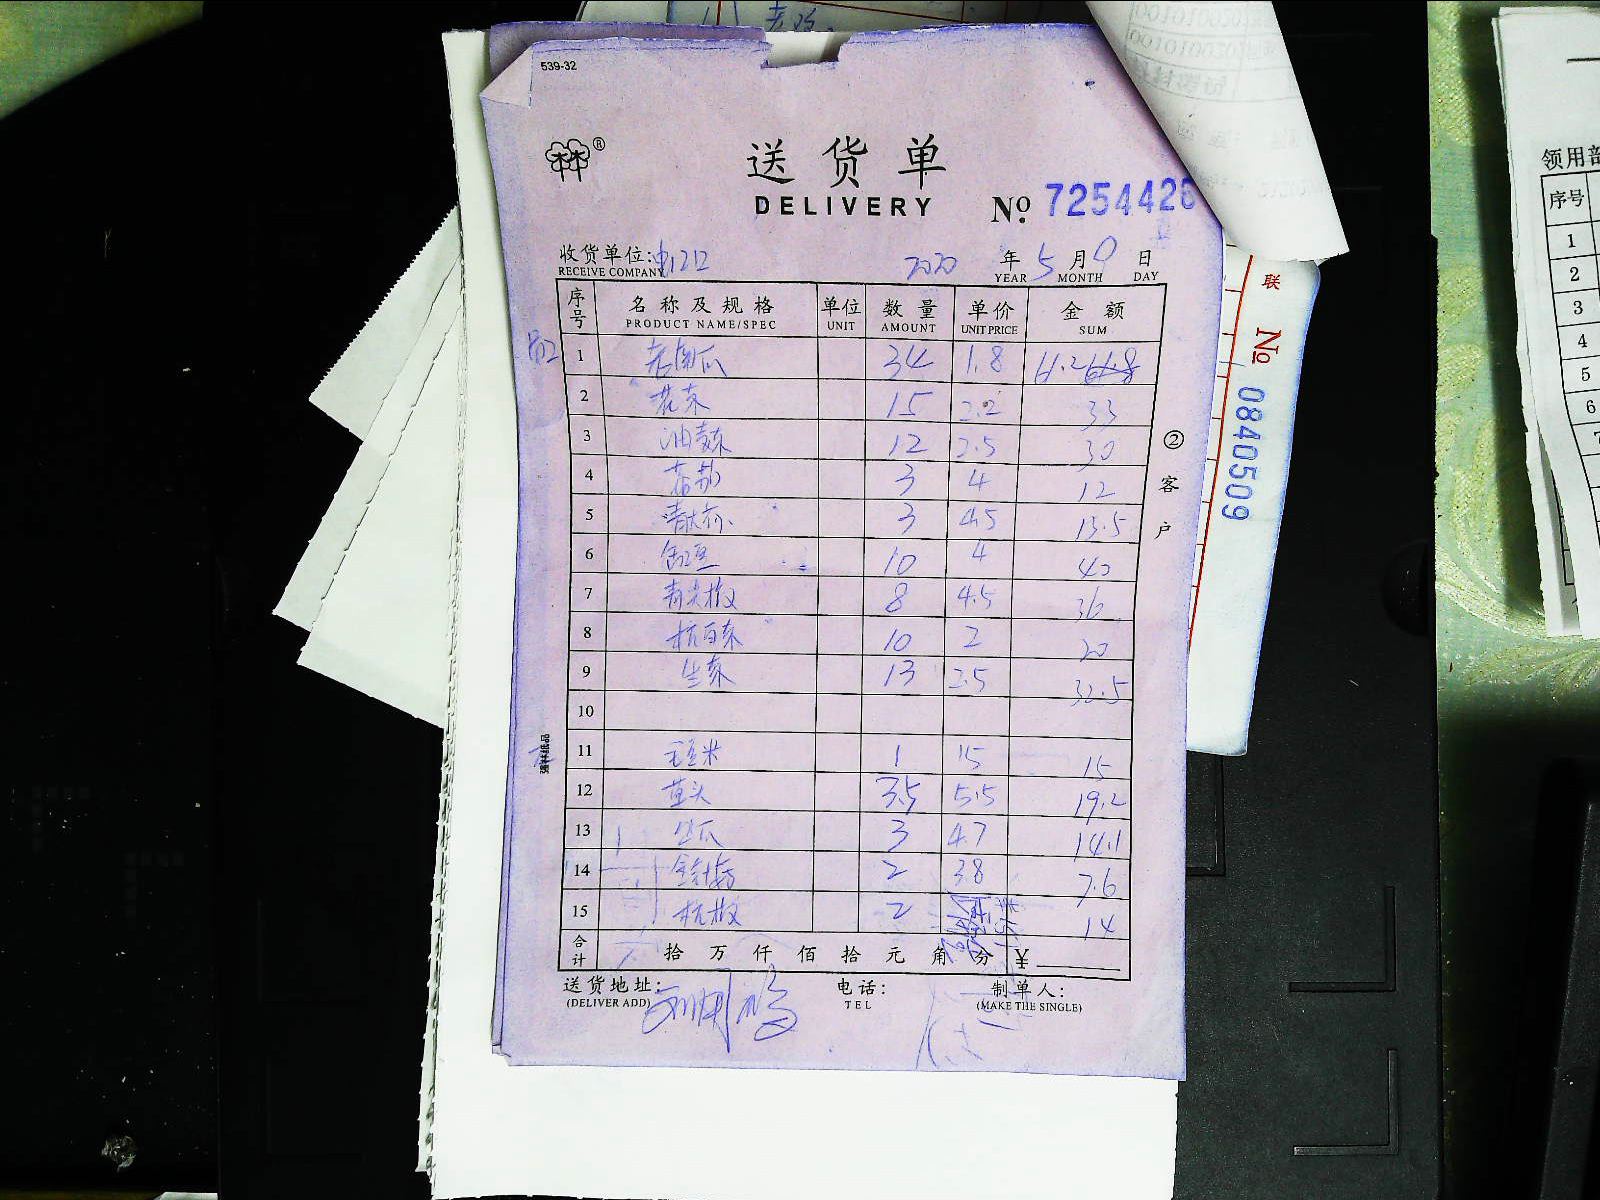 539-32
送货单
DELIVERY
№ 7254426
收货单位:
RECEIVE COMPANY
2020 年 5 月 日
YEAR MONTH DAY
序号 名称及规格 单位 数量 单价 金额
PRODUCT NAME/SPEC UNIT AMOUNT UNIT PRICE SUM
1 老南瓜 34 1.8 61.2
2 花菜 15 2.2 33
3 油麦菜 12 2.5 30
4 3 4 12
5 3 4.5 13.5
6 10 4 40
7 青尖椒 8 4.5 36
8 杭白菜 10 2 20
9 生菜 13 2.5 32.5
10
11 毛豆米 1 15 15
12 3.5 5.5 19.2
13 丝瓜 3 4.7 14.1
14 金针菇 2 3.8 7.6
15 杭椒 2 14
合计 拾 万 仟 佰 拾 元 角 分 ¥
送货地址:
(DELIVER ADD)
电话:
TEL
制单人:
(MAKE THE SINGLE)
② 客户
联
№ 0840509
领用部
序号
1
2
3
4
5
6